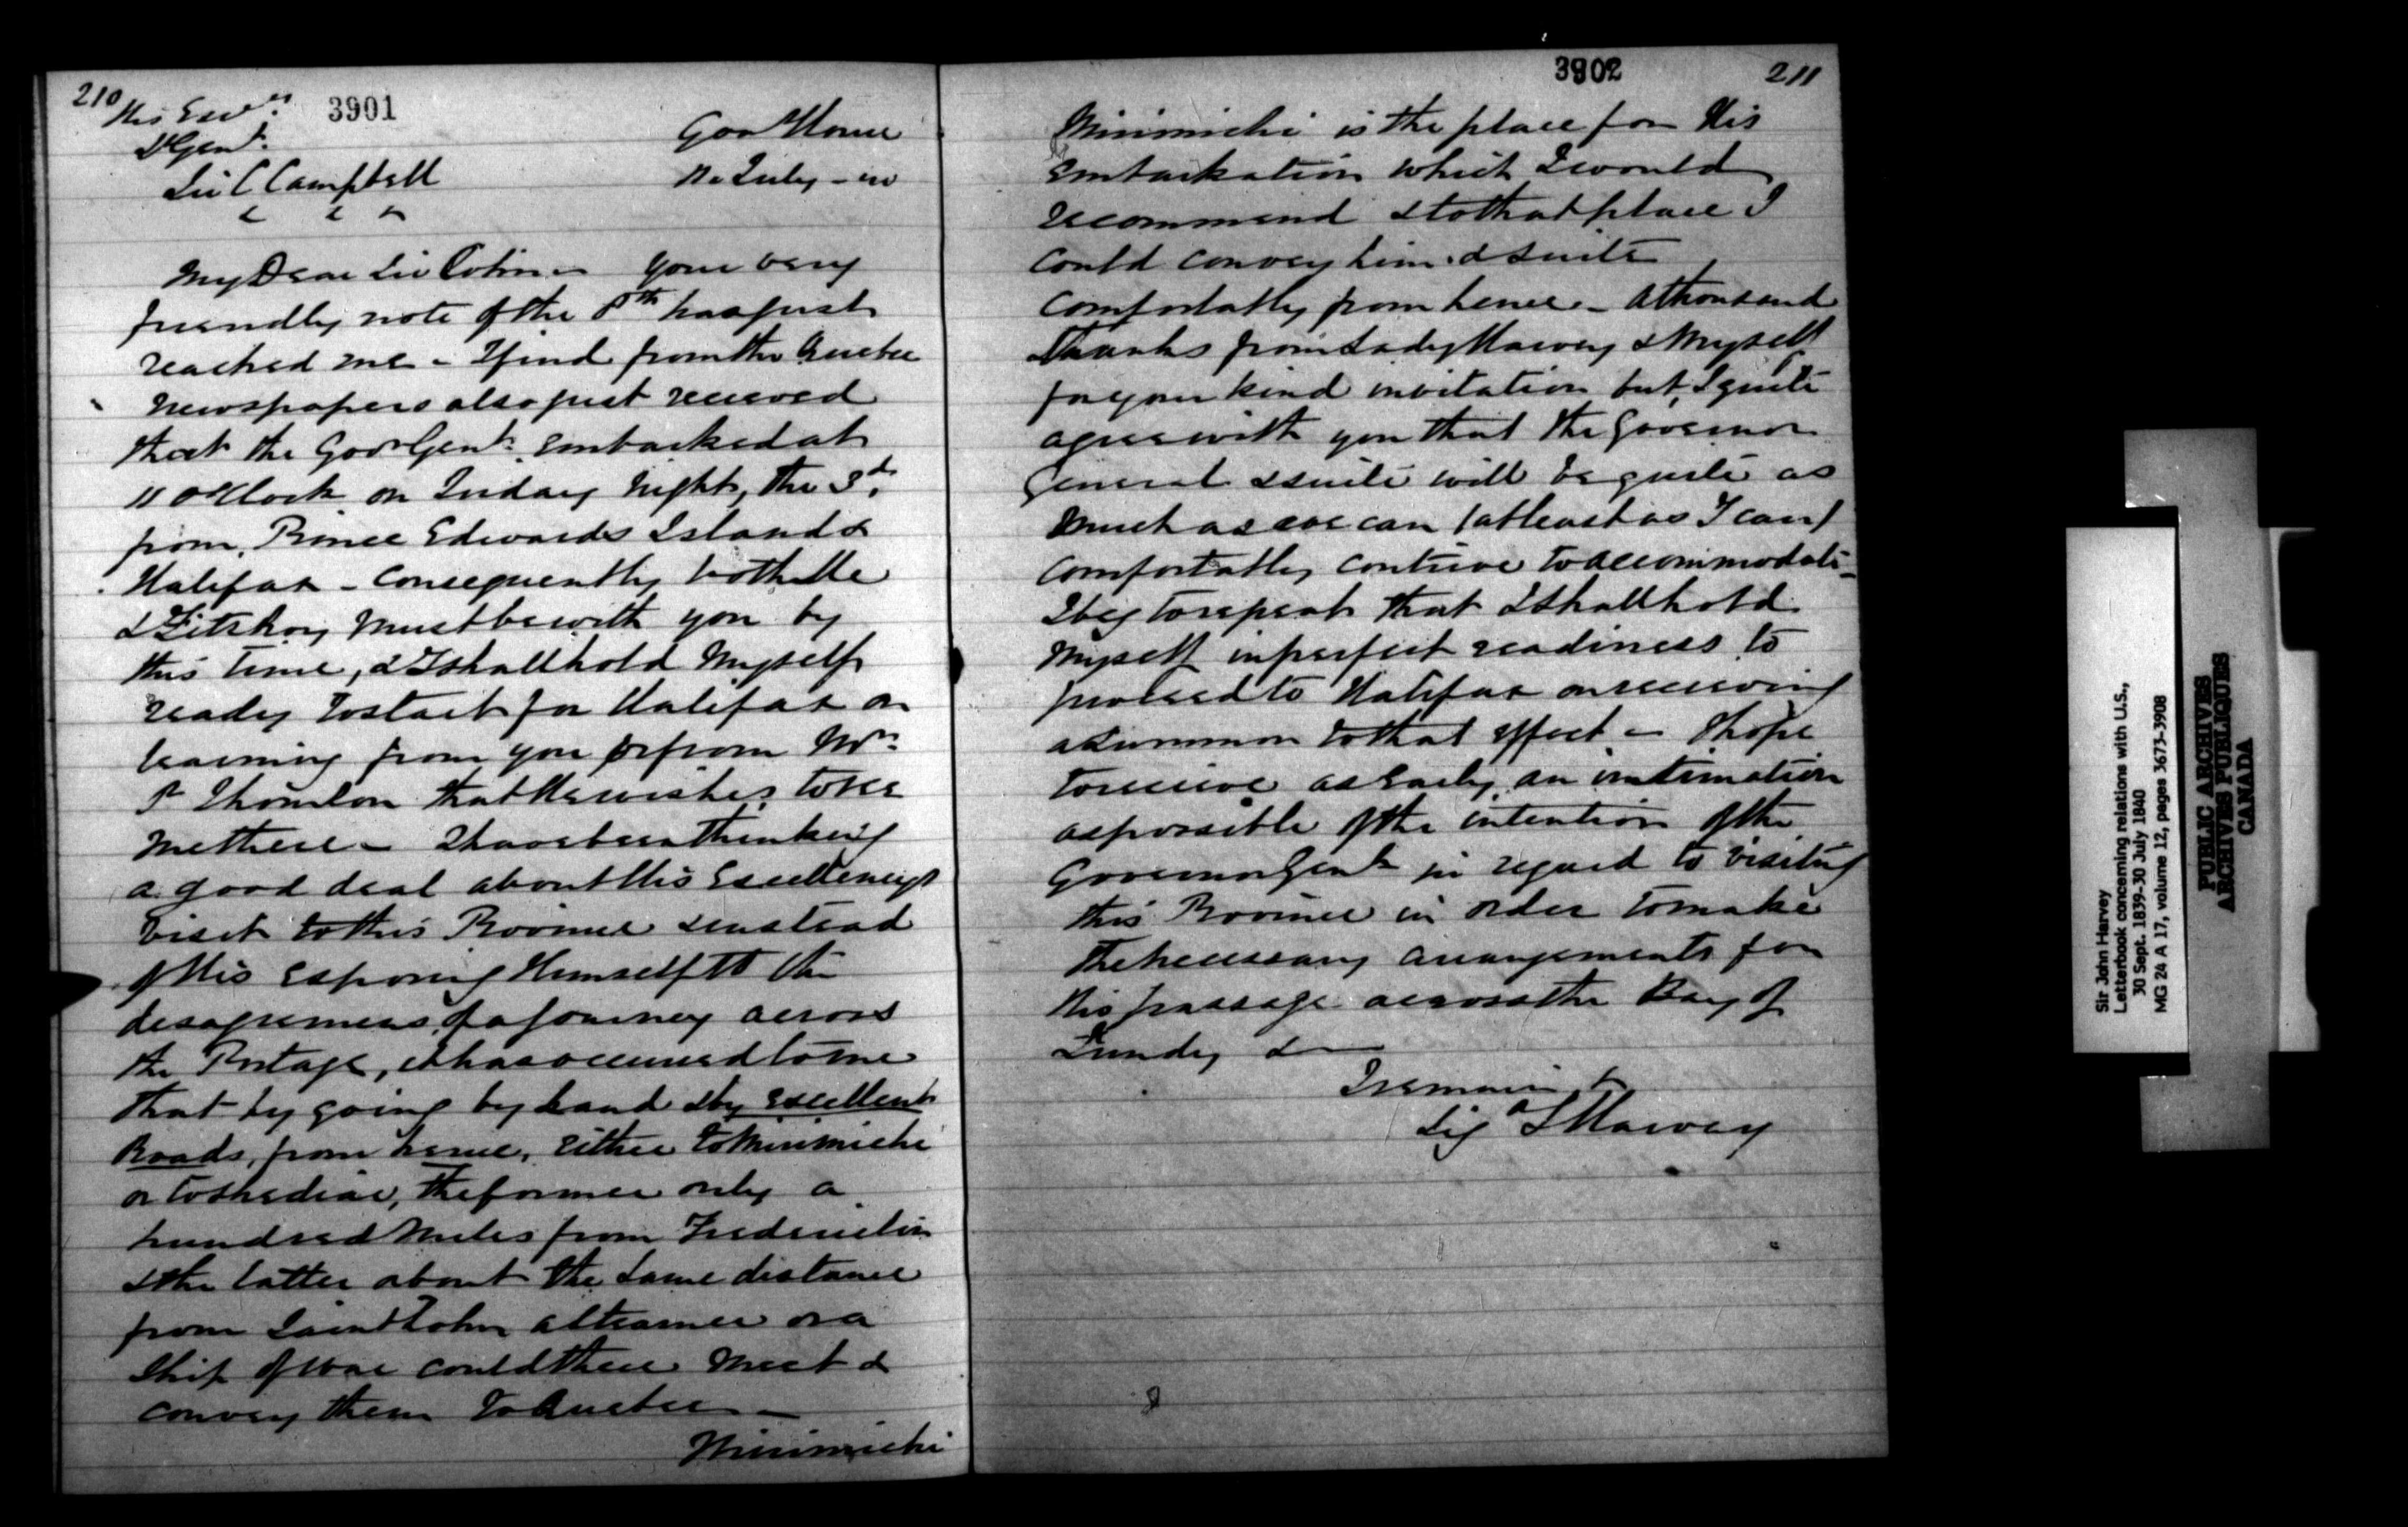 210
3901
His Exc.
Lt Gen.
Sir C Campbell
Gov House
July
My Dear Sir Colin – your very
friendly note of the 8th has just
reached me – I find from the Quebec
newspapers also just received
that the Gov Genl. embarked at
11 o'Clock on Friday night, the 3d.
from, Prince Edwards Island &
Halifax – consequently both He
& Fitzroy must be with you by
this time, & I shall hold myself
ready to start for Halifax on
learning from you or from Mr.
P Thomson that He wishes to see
me there – I have been thinking
a good deal about His Excellency's
visit to this Province & instead
of His exposing Himself to the
desagremens of a journey across
the Portage, it has occurred to me
that by going by land & by excellent
Roads, from hence, either to Mirimichi
or to Shediac, the former only a
hundred miles from Fredericton
& the latter about the same distance
from Saint John a Steamer or a
Ship of War could there meet &
convey them to Quebec –
Mirimichi
3902
211
Mirimichi is the place for His
embarkation which I would
recommend & to that place I
could convey him & suite
comfortably from hence – a thousand
thanks from Lady Harvey & myself
for your kind invitation but, I quite
agree with you that the Governor
General & suite will be quite as
much as we can (at least as I can)
comfortably contrive to accommodate –
I beg to repeat that I shall hold
myself in perfect readiness to
proceed to Halifax on receiving
a Summon to that effect – I hope
to receive as early an intimation
as possible of the intention of the
Governor Genl in regard to visiting
this Province in order to make
the necessary arrangements for
His passage across the Bay of
Fundy &
I remain &
Sigd J Harvey
Sir John Harvey
Letterbook concerning relations with U.S.,
30 Sept. 1839-30 July 1840
MG 24 A 17, volume 12, pages 3673-3908
PUBLIC ARCHIVES
ARCHIVES PUBLIQUES
CANADA